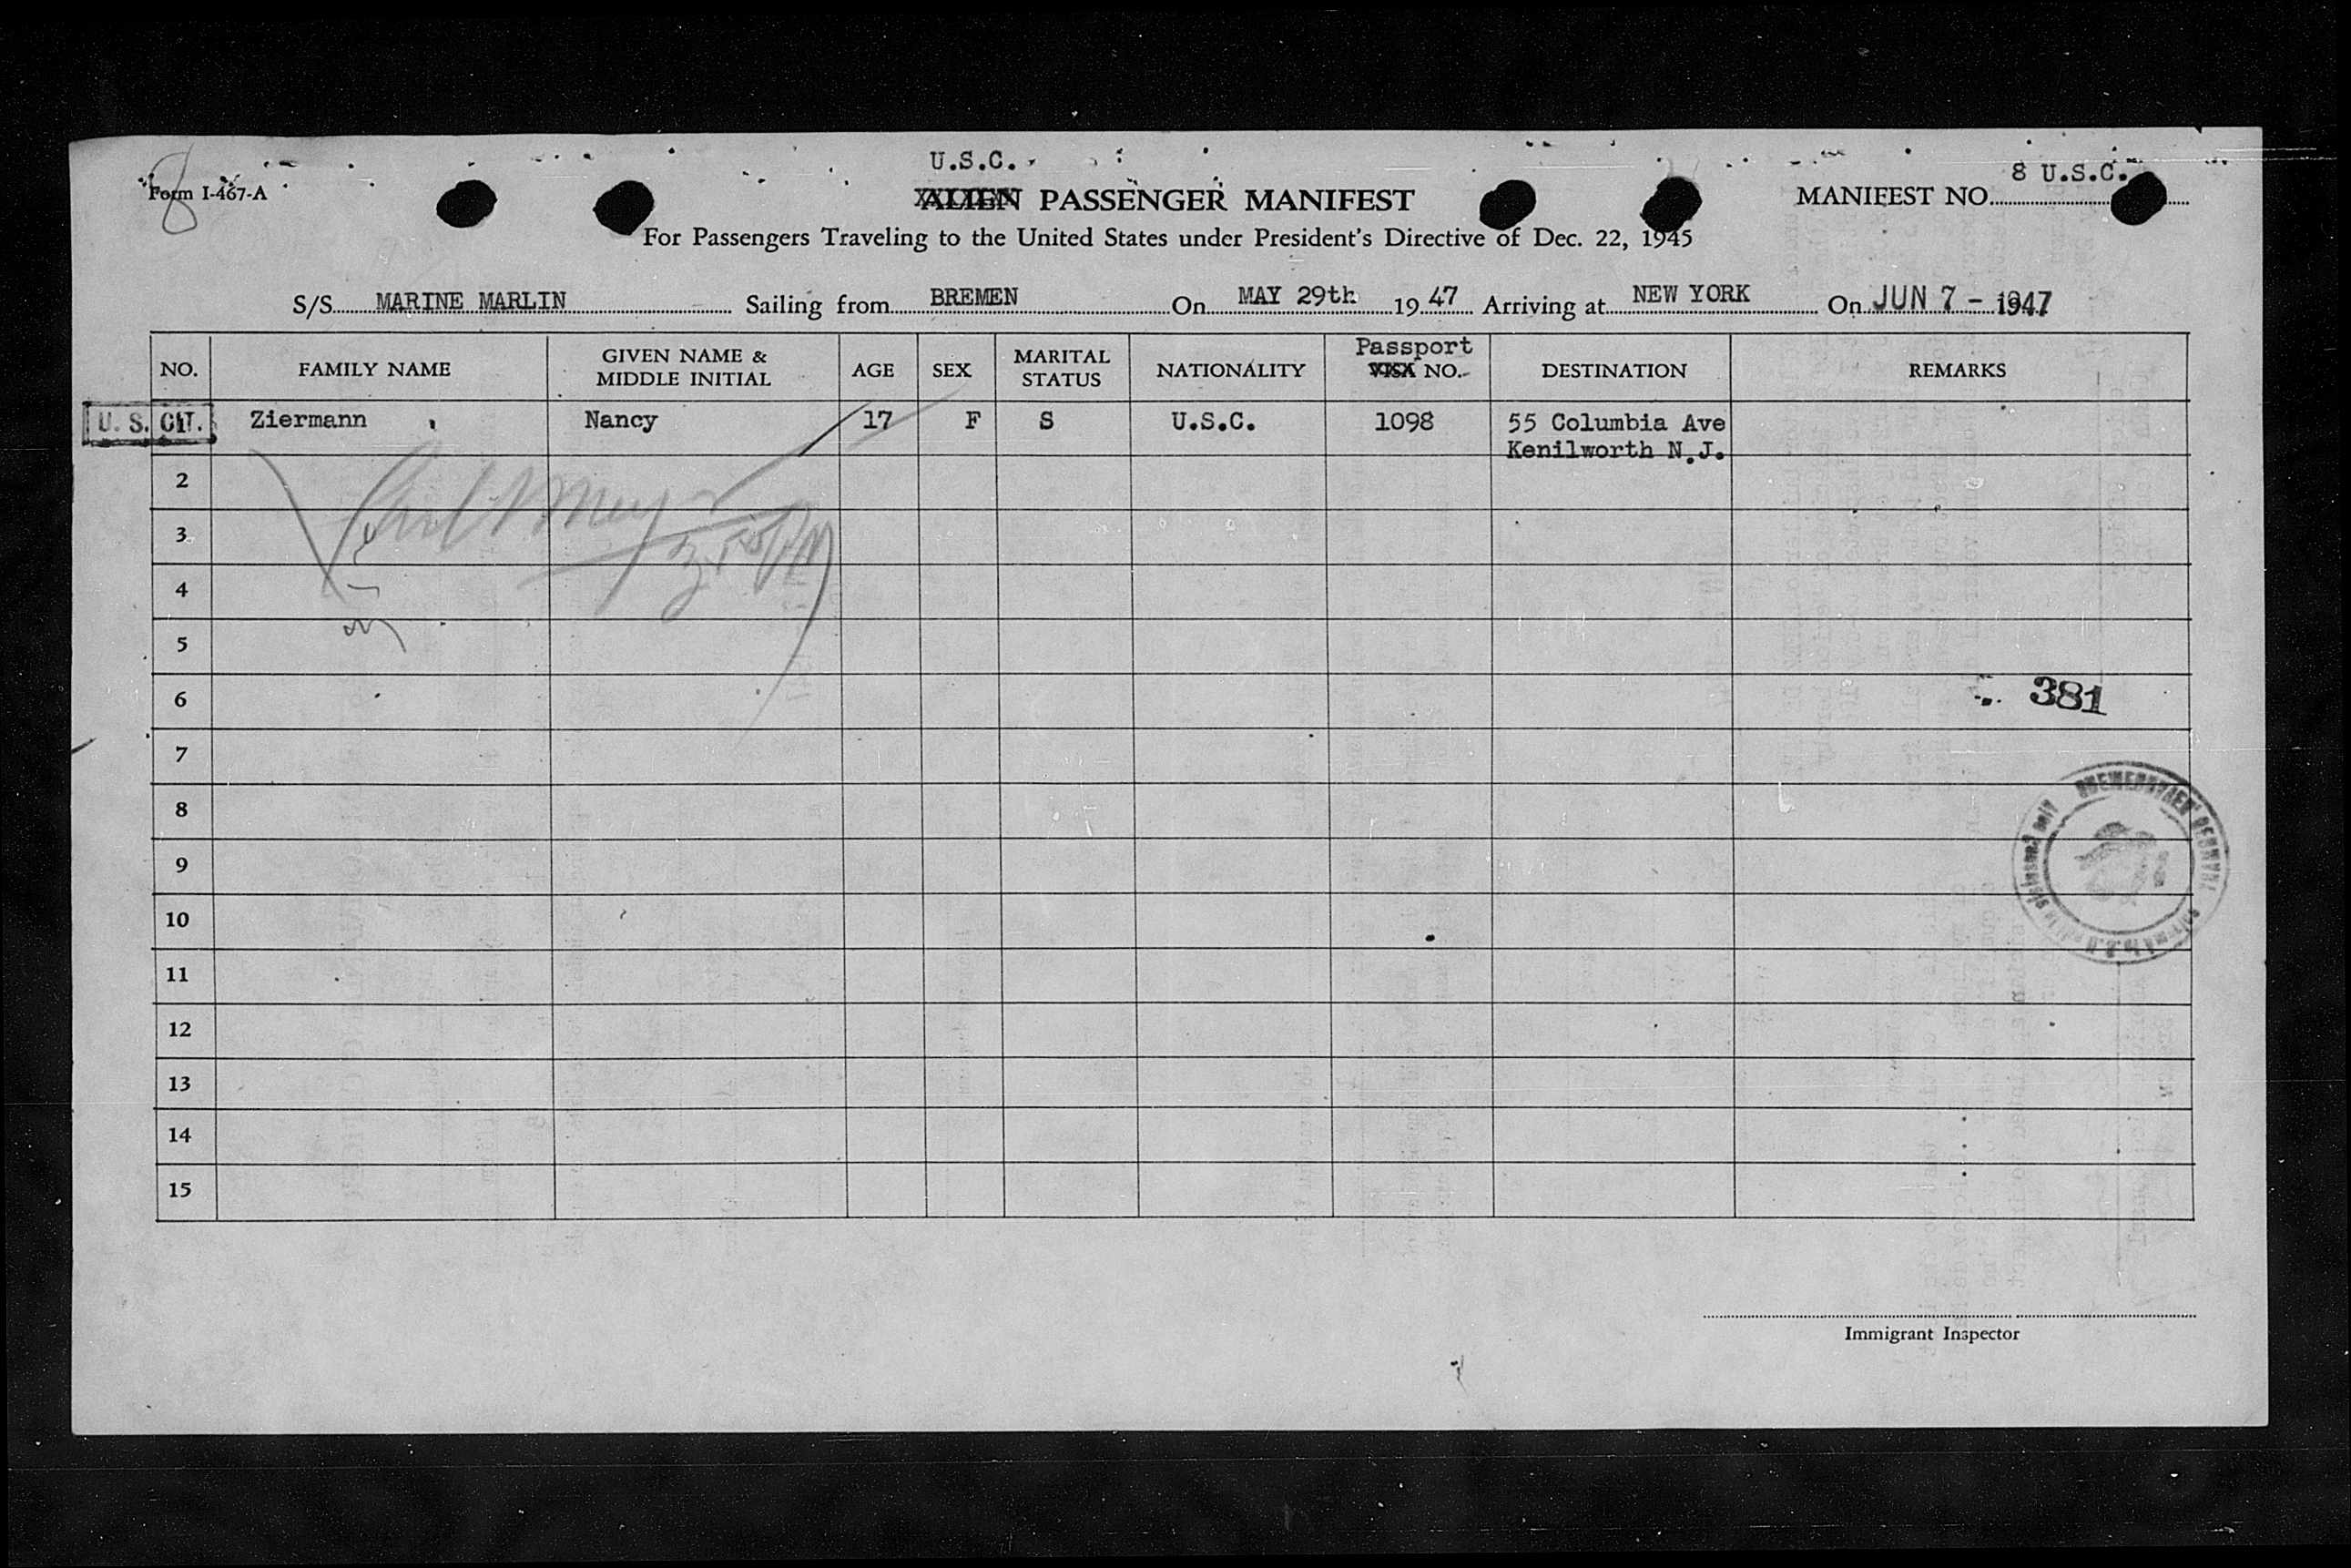 U.S.C.
8 U.S.C.
8
Form I-467-A
ALIEN PASSENGER MANIFEST
MANIFEST NO.
For Passengers Traveling to the United States under President's Directive of Dec. 22, 1945
S/S MARINE MARLIN Sailing from BREMEN On MAY 29th 1947 Arriving at NEW YORK On JUN 7 - 1947
NO. FAMILY NAME GIVEN NAME & MIDDLE INITIAL AGE SEX MARITAL STATUS NATIONALITY Passport VISA NO. DESTINATION REMARKS
U. S. CIT. Ziermann Nancy 17 F S U.S.C. 1098 55 Columbia Ave
Kenilworth N.J.
2
3
4
5
6 381
7
8
9
10
11
12
13
14
15
Immigrant Inspector